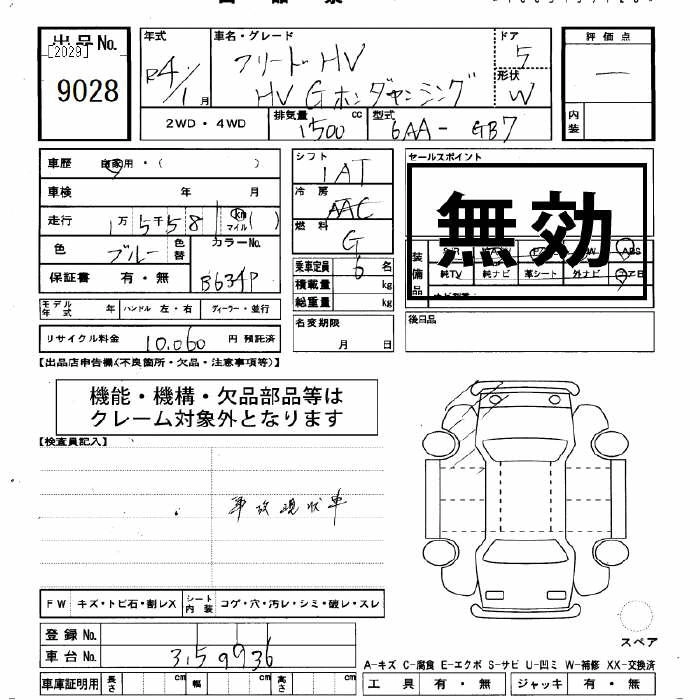 出品No.
[2029]
9028
年式
R4/1月
車名・グレード
フリード HV
HV G ホンダセンシング
ドア
5
形状
W
評価点
一
内装
2WD・4WD
排気量
1500 cc
型式
6AA-GB7
車歴 自家用・( )
車検 年 月
走行 1万5千581 km マイル ( )
色 ブルー 色替
カラーNo.
B634P
保証書 有・無
シフト
IAT
冷房
AAC
燃料
G
乗車定員 6 名
積載量 kg
総重量 kg
セールスポイント
無効
装備品
ABS
純TV 純ナビ 革シート 外ナビ エアB
モデル年式 年 ハンドル 左・右 ディーラー・並行
リサイクル料金 10,060 円 預託済
名変期限
月 日
後日品
【出品店申告欄(不良箇所・欠品・注意事項等)】
機能・機構・欠品部品等は
クレーム対象外となります
【検査員記入】
事故現状車
FW キズ・トビ石・割レX シート内装 コゲ・穴・汚レ・シミ・破レ・スレ
登録No.
車台No. 3159936
車庫証明用 長さ cm 幅 cm 高さ cm
スペア
A-キズ C-腐食 E-エクボ S-サビ U-凹ミ W-補修 XX-交換済
工具 有・無 ジャッキ 有・無